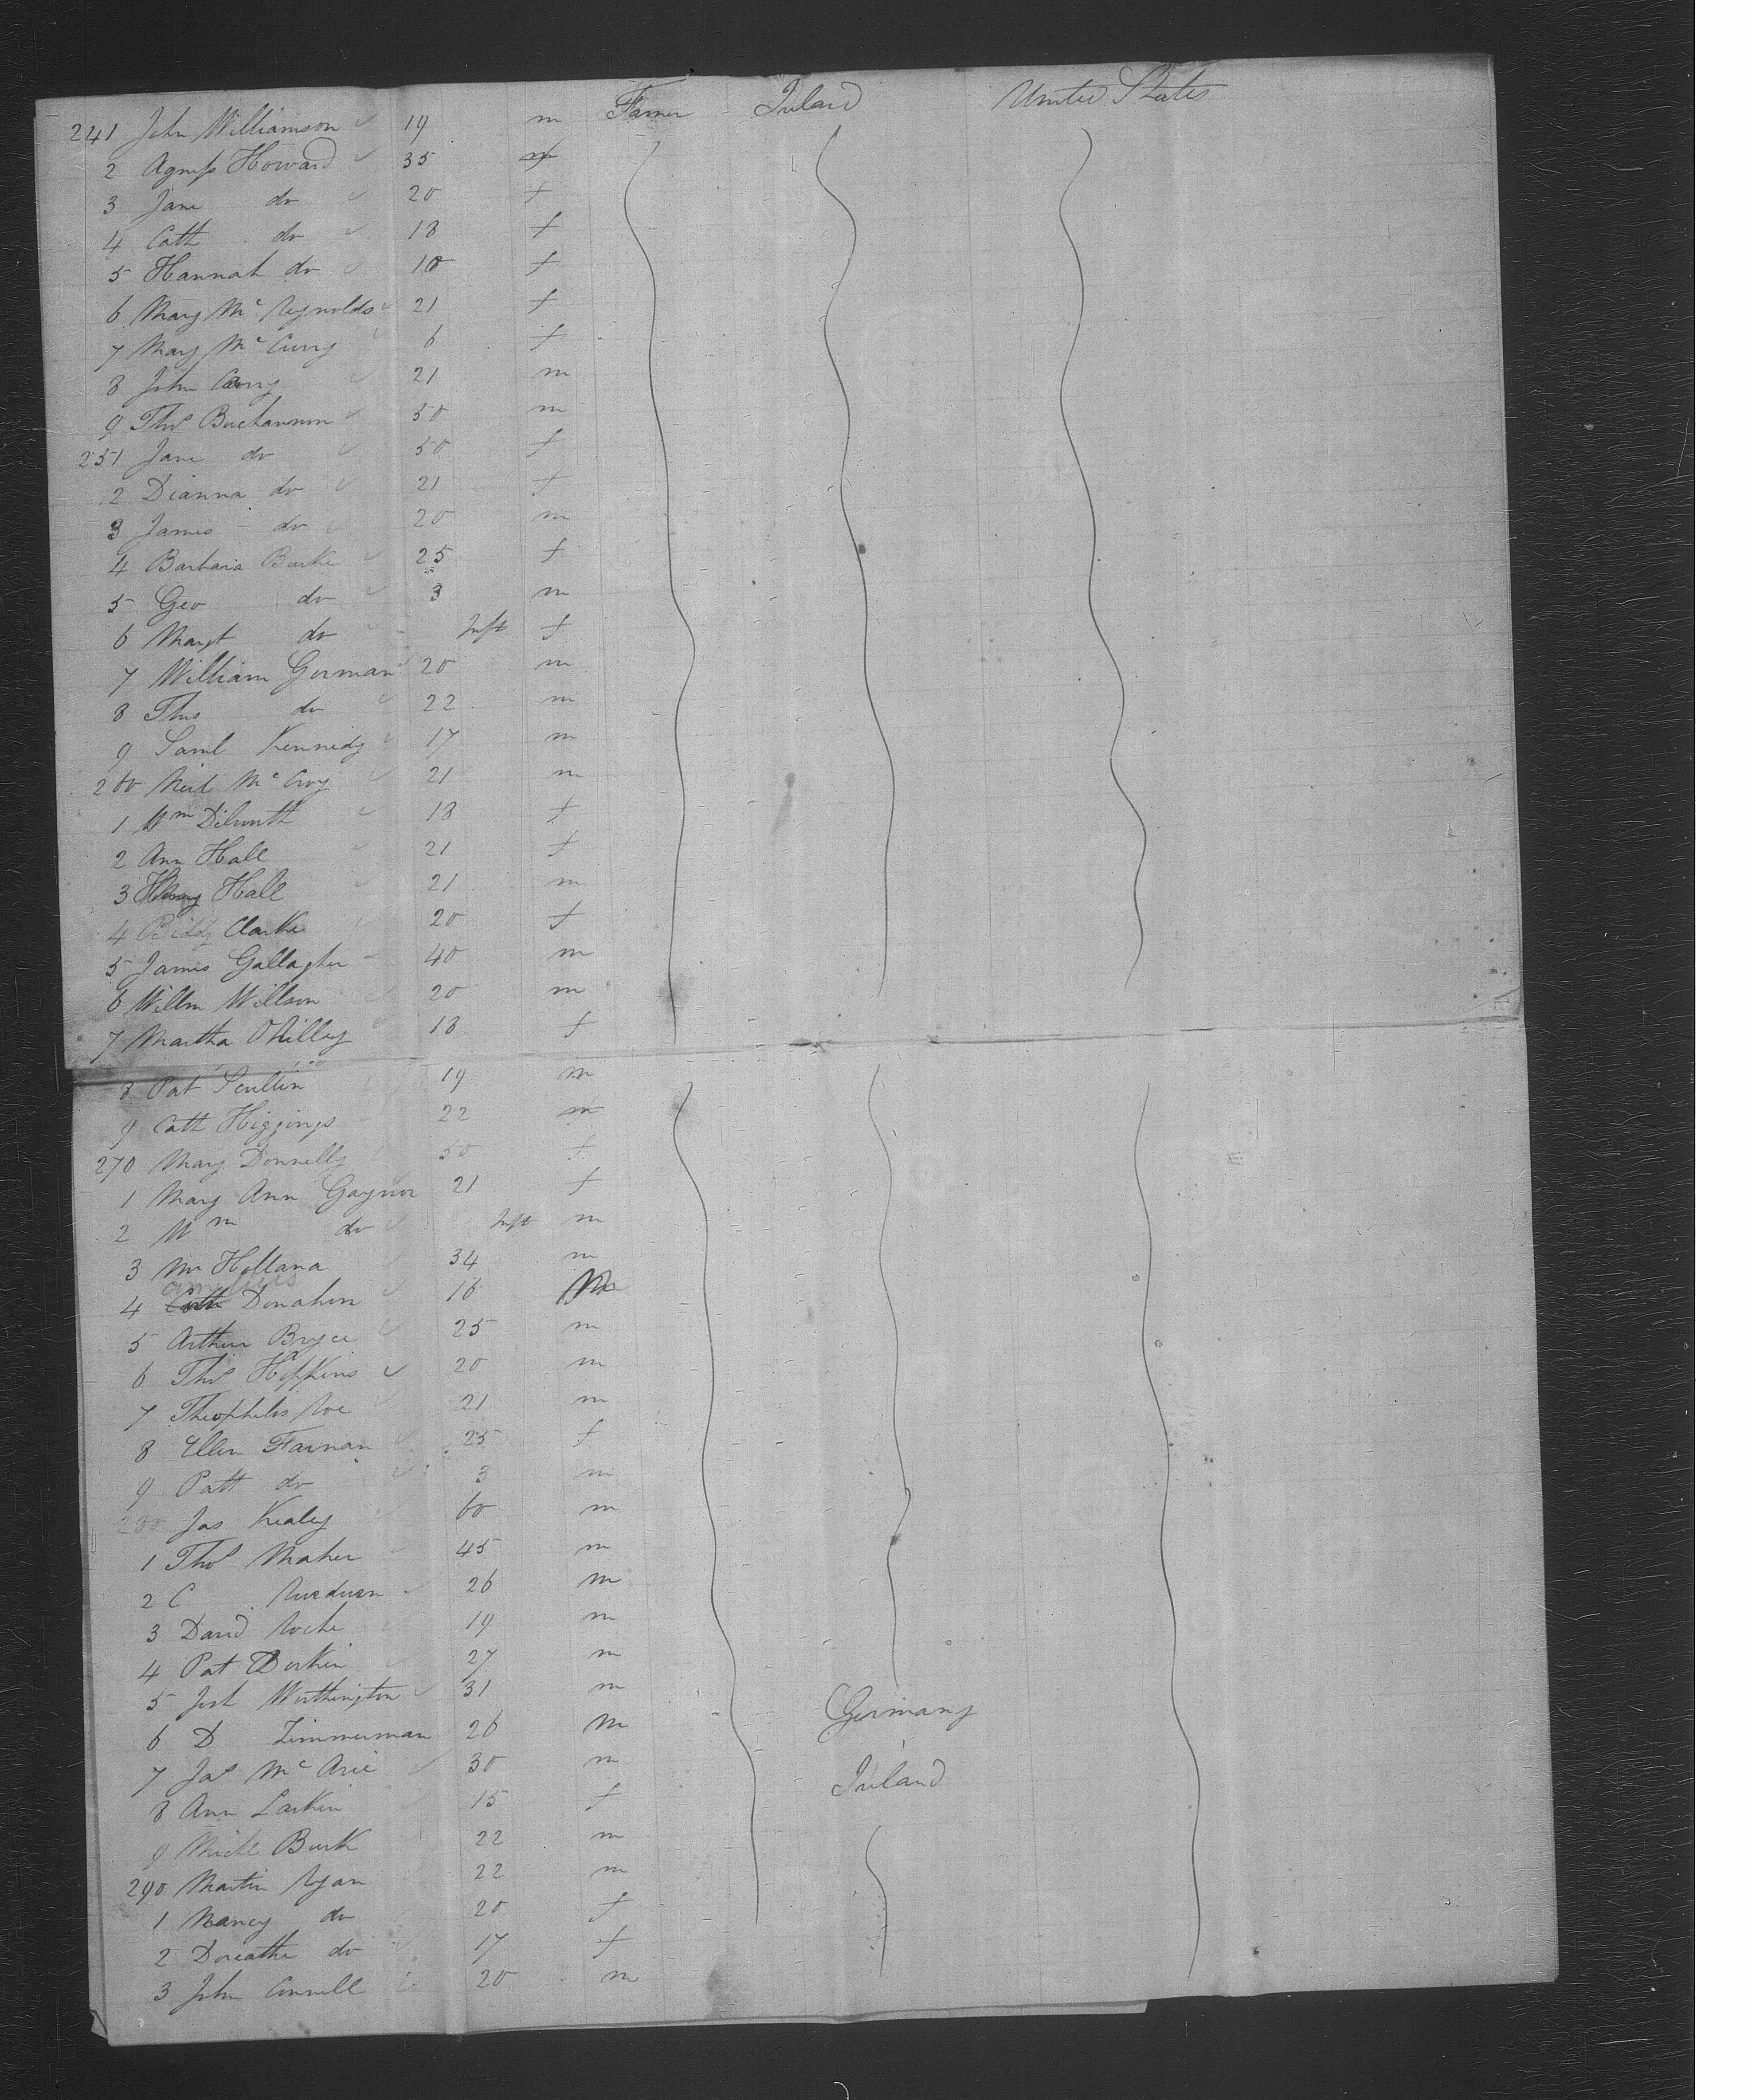 241 John Williamson 19 m Farmer Ireland United States
2 Agness Howard 35 f
3 Jane do 20 f
4 Cath do 18 f
5 Hannah do 10 f
6 Mary Mc Reynolds 21 f
7 Mary Mc Curry 6 f
8 John 21 m
9 Thos Buchannon 50 m
251 Jane do 50 f
2 Dianna do 21 f
3 James do 20 m
4 Barbara Burke 25 f
5 Geo do 3 m
6 Margt do Inft f
7 William Gorman 20 m
8 Thos do 22 m
9 Saml Kennedy 17 m
260 Neil Mc Croy 21 m
1 Wm Dilworth 18 f
2 Ann Hall 21 f
3 Henry Hall 21 m
4 Biddy Clarke 20 f
5 James Gallagher 40 m
6 Willm Willson 20 m
7 Martha O'Rilley 18 f
8 Pat Scullin 19 m
9 Cath Higgings 22 m
270 Mary Donnelly 50 f
1 Mary Ann Gaynor 21 f
2 Wm do Inft m
3 Mr Hollana 34 m
4 Donahon 16
5 Arthur Bryce 25 m
6 Thos Hopkins 20 m
7 Theophelus Roe 21 m
8 Ellen Farnan 25 f
9 Patt do 3 m
280 Jas Kealey 60 m
1 Thos Maher 45 m
2 C 26 m
3 David Roche 19 m
4 Pat Dorkin 27 m
5 Josh Worthington 31 m
6 D Zimmerman 26 m Germany
7 Jas Mc 30 m Ireland
8 Ann Larkin 15 f
9 Michl Burk 22 m
290 Martin Ryan 22 m
1 Nancy do 20 f
2 Doreathe do 17 f
3 John Connell 20 m